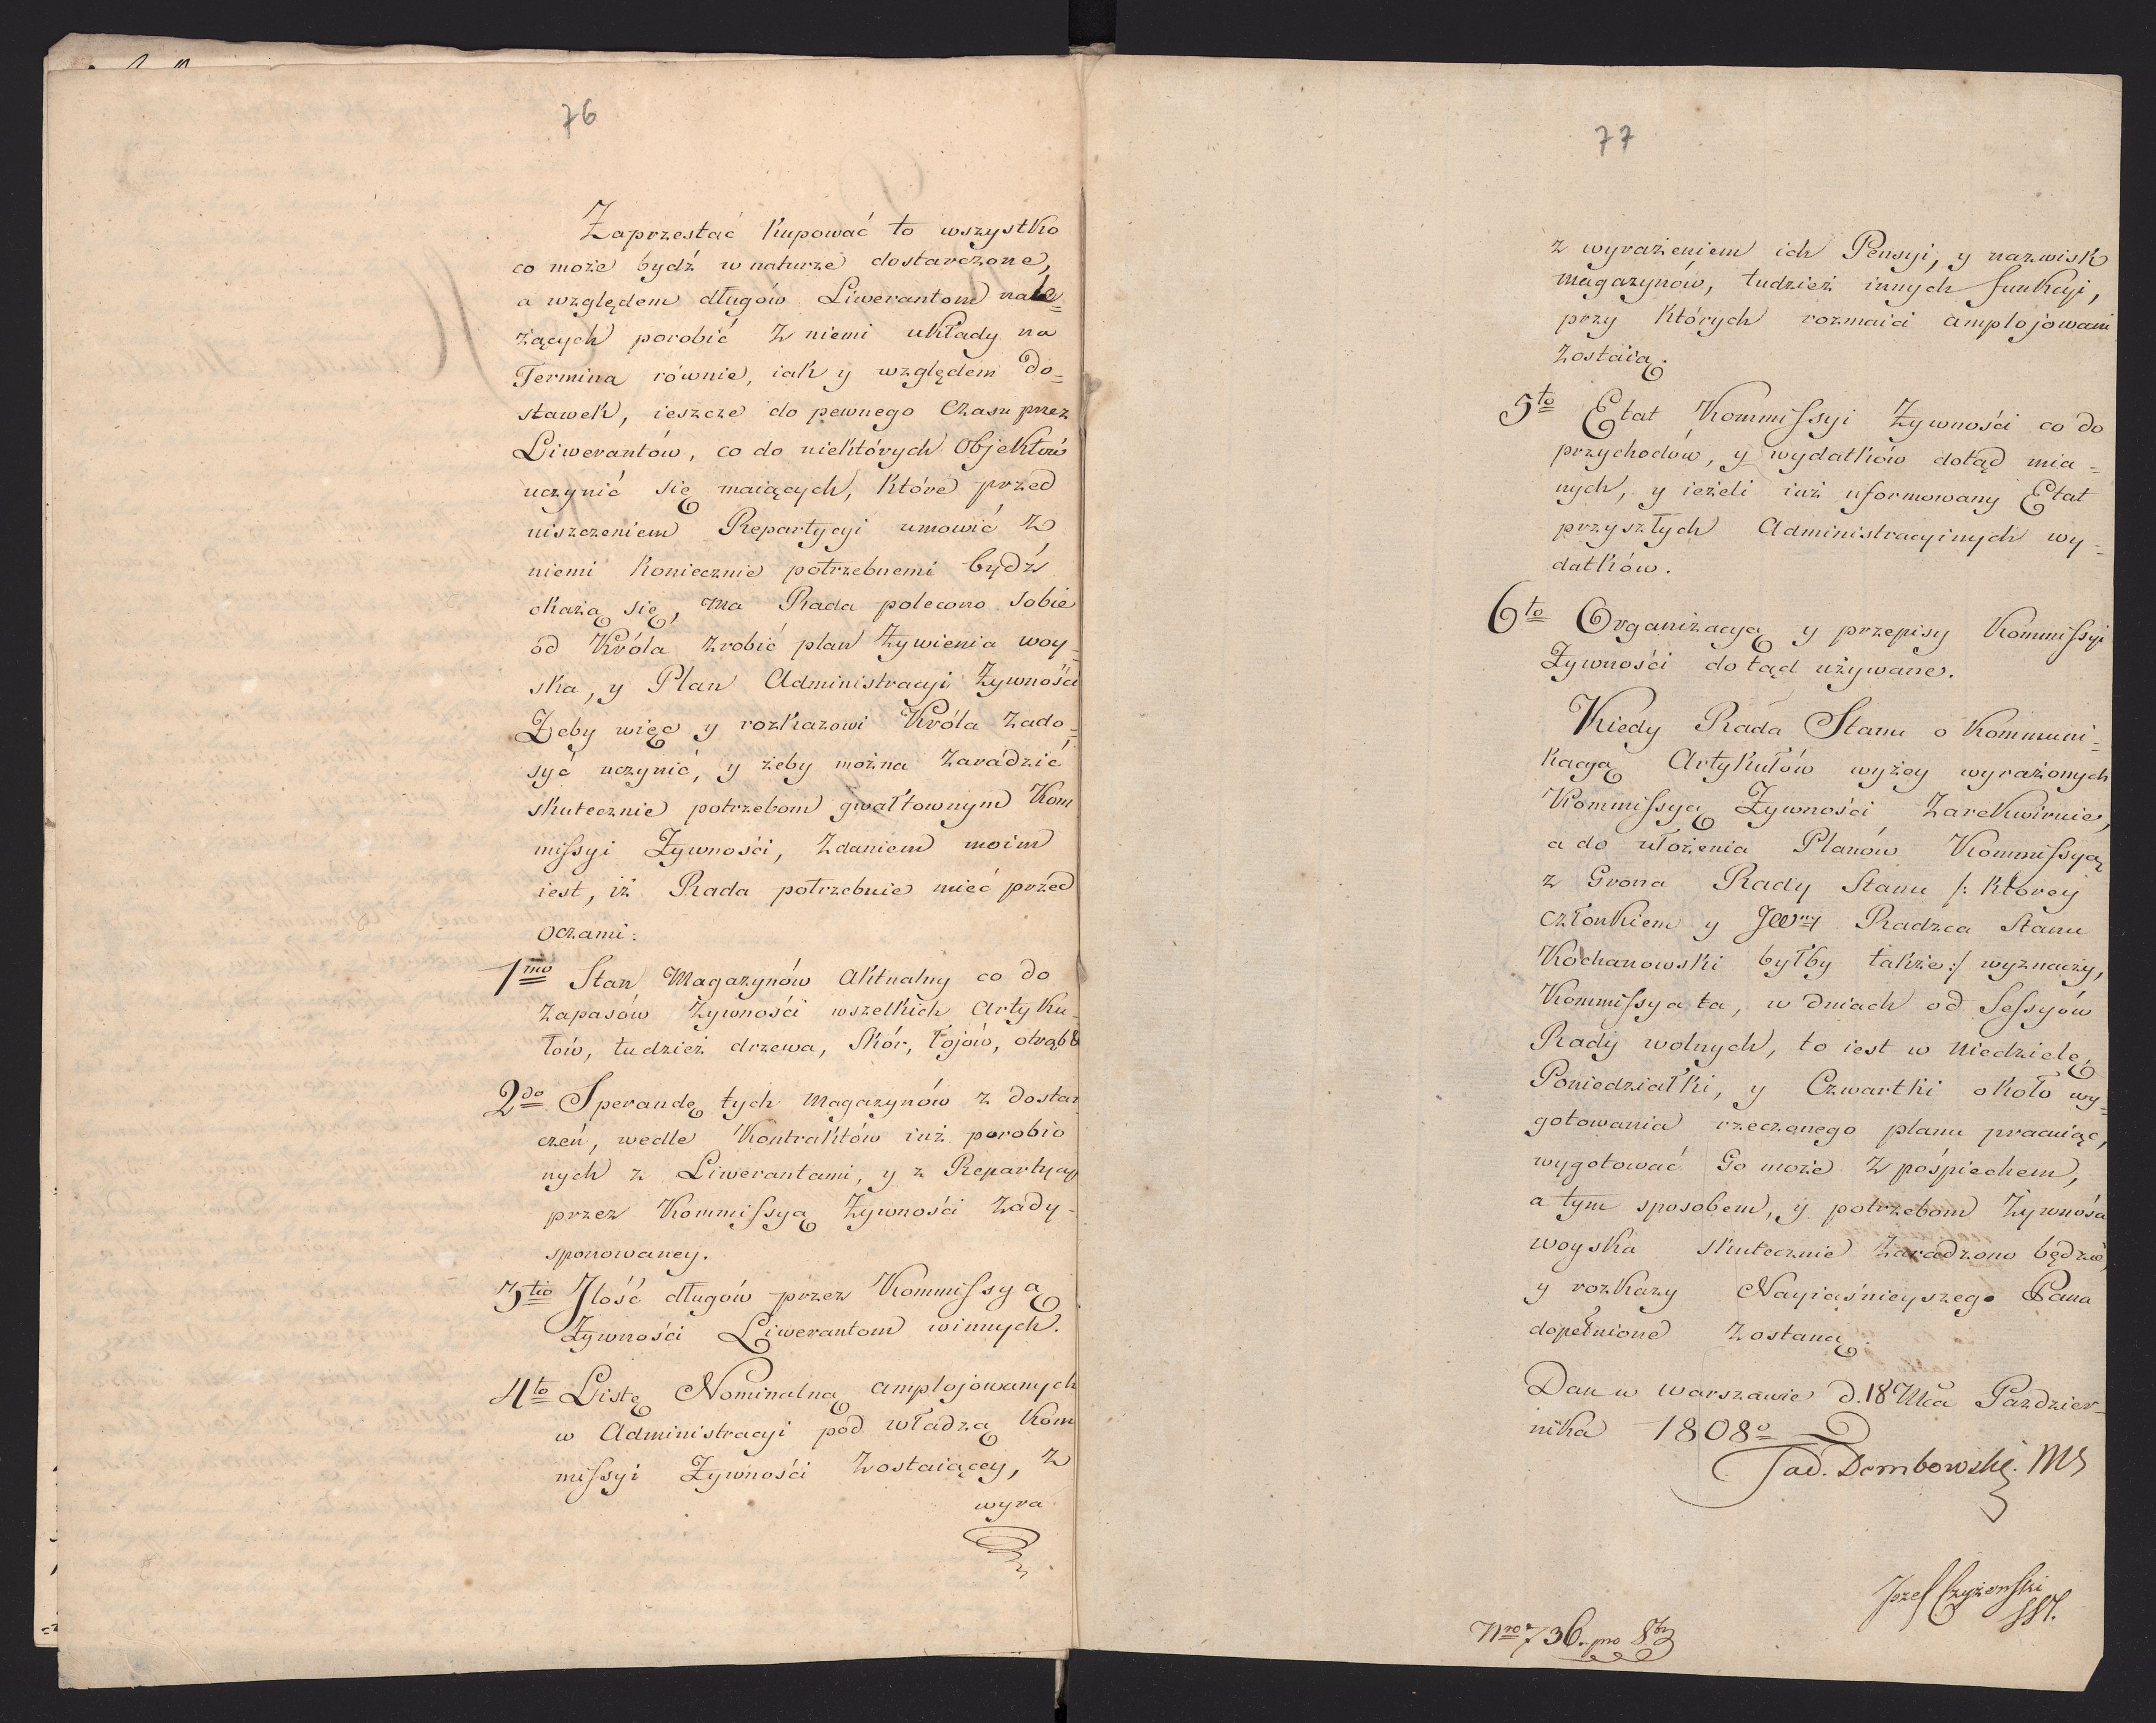 76
Zaprzestać kupować to wszystko
co może bydź w naturze dostarczone,
a względem długów Liwerantom nale=
żących porobić z niemi układy na
Termina równie, iak y względem do=
stawek, ieszcze do pewnego czasu przez
Liwerantów, co do niektórych Objektów
uczynić się maiących, które przed
niszczeniem Repartycyi umowić z
niemi koniecznie potrzebnemi bydź
okażą się, ma Rada polecono sobie
od Króla zrobić plan żywienia woy=
ska, y Plan Administracyi Żywności
Żeby więc y rozkazowi Króla zado=
syć uczynić, y żeby można zaradzić
skutecznie potrzebom gwałtownym Kom
missyi Żywności, zdaniem moim
iest, iż Rada potrzebuie mieć przed
oczami:
1mo Stan Magazynów aktualny co do
zapasów żywności wszelkich Artyku=
łów, tudzież drzewa, skór, łojów, otrąb &
2do Sperandę tych magazynów z dostar
czeń, wedle Kontraktów iuż porobio
nych z Liwerantami, y z Repartycyi
przez Kommissyą Żywności zady-
sponowaney.
3tio Jlość długów przez Kommissyą
Żywności Liwerantom winnych.
4to Listę Nominalną amplojowanych
w Administracyi pod władzą Kom
missyi Żywności zostaiącey, z
wyra
77
z wyrażeniem ich Pensyi, y nazwisk
magazynów, tudzież innych funkcyi,
przy których rozmaici amplojowani
zostaią.
5to Etat Kommissyi Żywności co do
przychodów, y wydatków dotąd mia=
nych, y ieżeli iuż uformowany Etat
przyszłych Administracyinych wy=
datków.
6to Organizacyą y przepisy Kommissyi
Żywności dotąd używane.
Kiedy Rada Stanu o kommuni=
kacyą Artykułów wyżey wyrażonych
Kommissyą Żywności zarekwiruie,
a do ułożenia Planów Kommissyą
z Grona Rady Stanu /: którey
członkiem y JWny Radzca Stanu
Kochanowski byłby także :/ wyznaczy,
Kommissya ta, w dniach od Sessyów
Rady wolnych, to iest w Niedzielę,
Poniedziałki, y Czwartki około wy=
gotowania rzeczonego planu pracuiąc,
wygotować Go może z pośpiechem,
a tym sposobem, y potrzebom Żywności
woyska skutecznie zaradzono będzie,
y rozkazy Nayiaśnieyszego Pana
dopełnione zostaną.
Dan w Warszawie d. 18 Mca Paździer=
nika 1808o
Tad. Dembowski. MS
Jozef Czyżewski
Nro 736. pro 8br